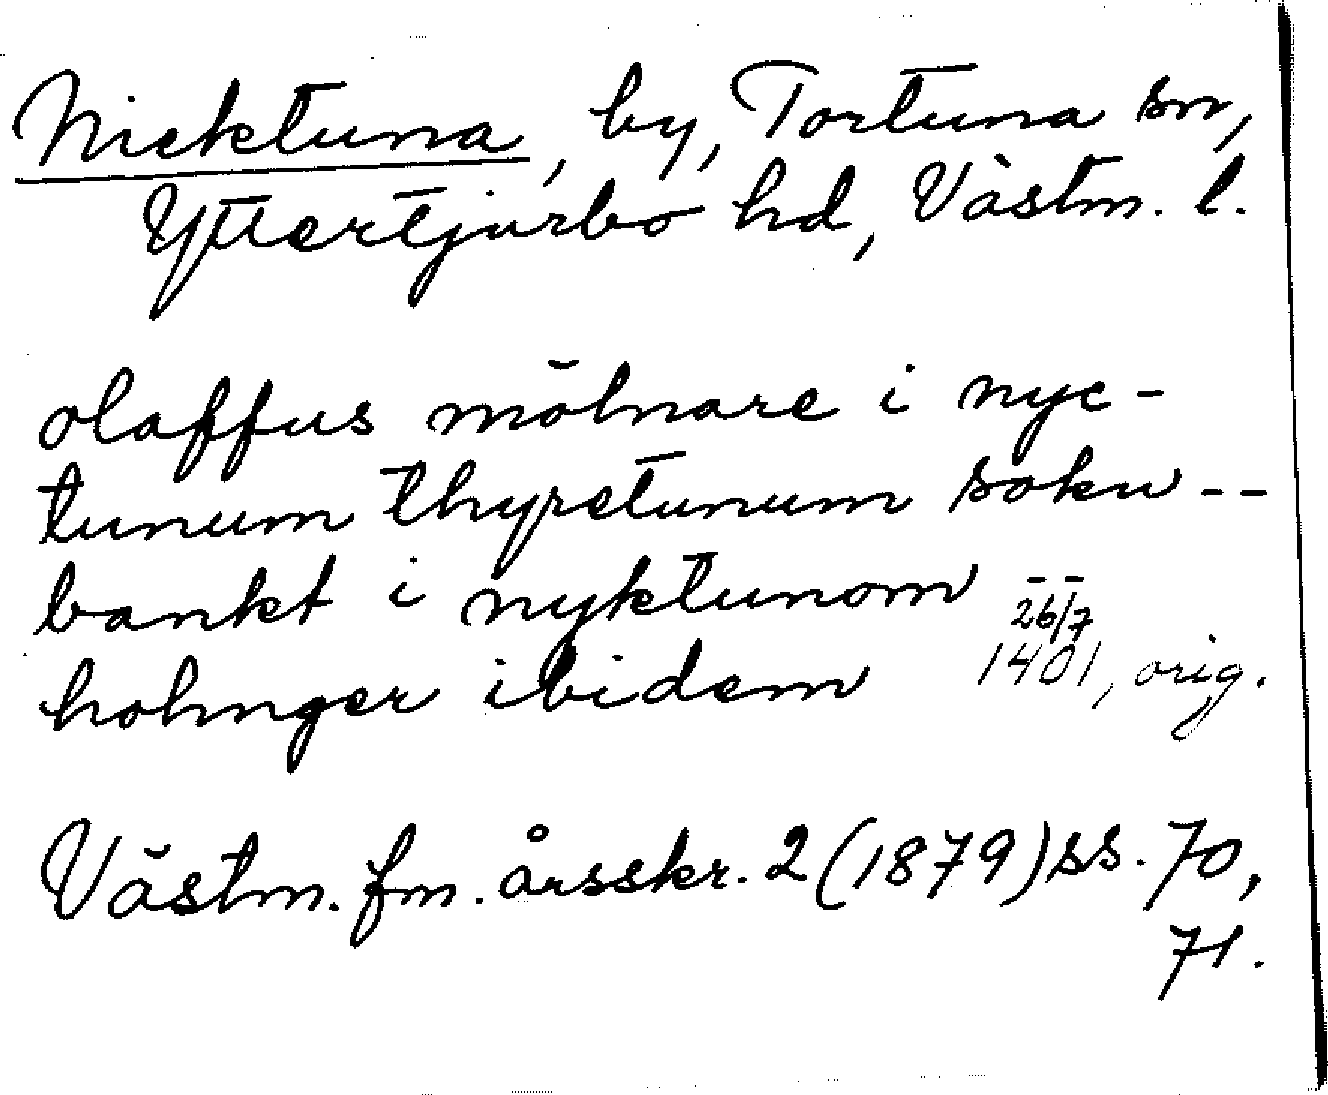 Nicktuna, by, Tortuna sn,
Yttertjurbo hd, Västm. l.
olaffus mölnare i nyc-
tunum thyretunum soku --
bankt i nyktunom --
holmger ibidem 26/7 1401, orig.
Västm. fm. årsskr. 2 (1879) ss. 70,
71.